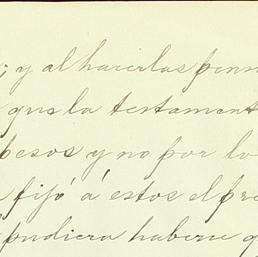 ; y al hacerlas penn
que la testament
pesos y no por lo
fijó á estos el pre
pudiera haberse q